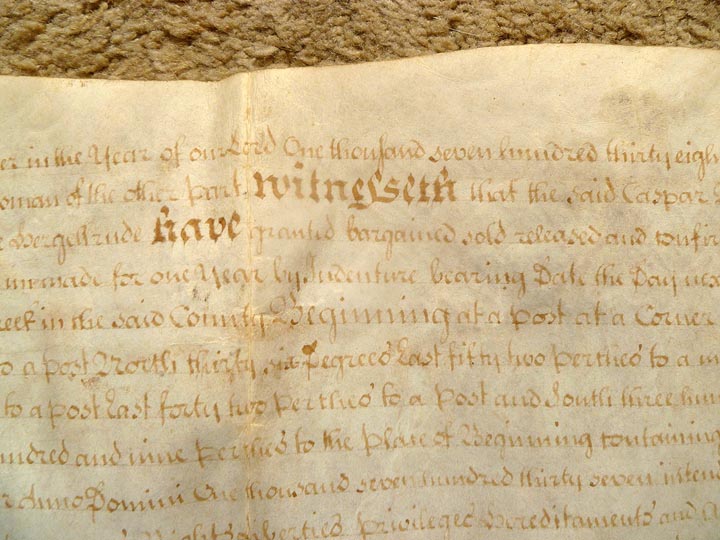 er in the Year of our Lord One thousand seven hundred thirty eigh
oman of the other part witnesseth that the said Caspar
e Bergehrude have granted bargained sold released and confir
made for one Year by Indenture bearing Date the Day next
reek in the said County Beginning at a post at a Corner
o a post North thirty six Degrees East fifty two perches to a
to a post East forty two perches to a Post and South three hun
undred and nine perches to the place of Beginning containing
r Anno Domini One thousand seven hundred thirty seven inten
Rights Liberties Privileges Hereditaments and